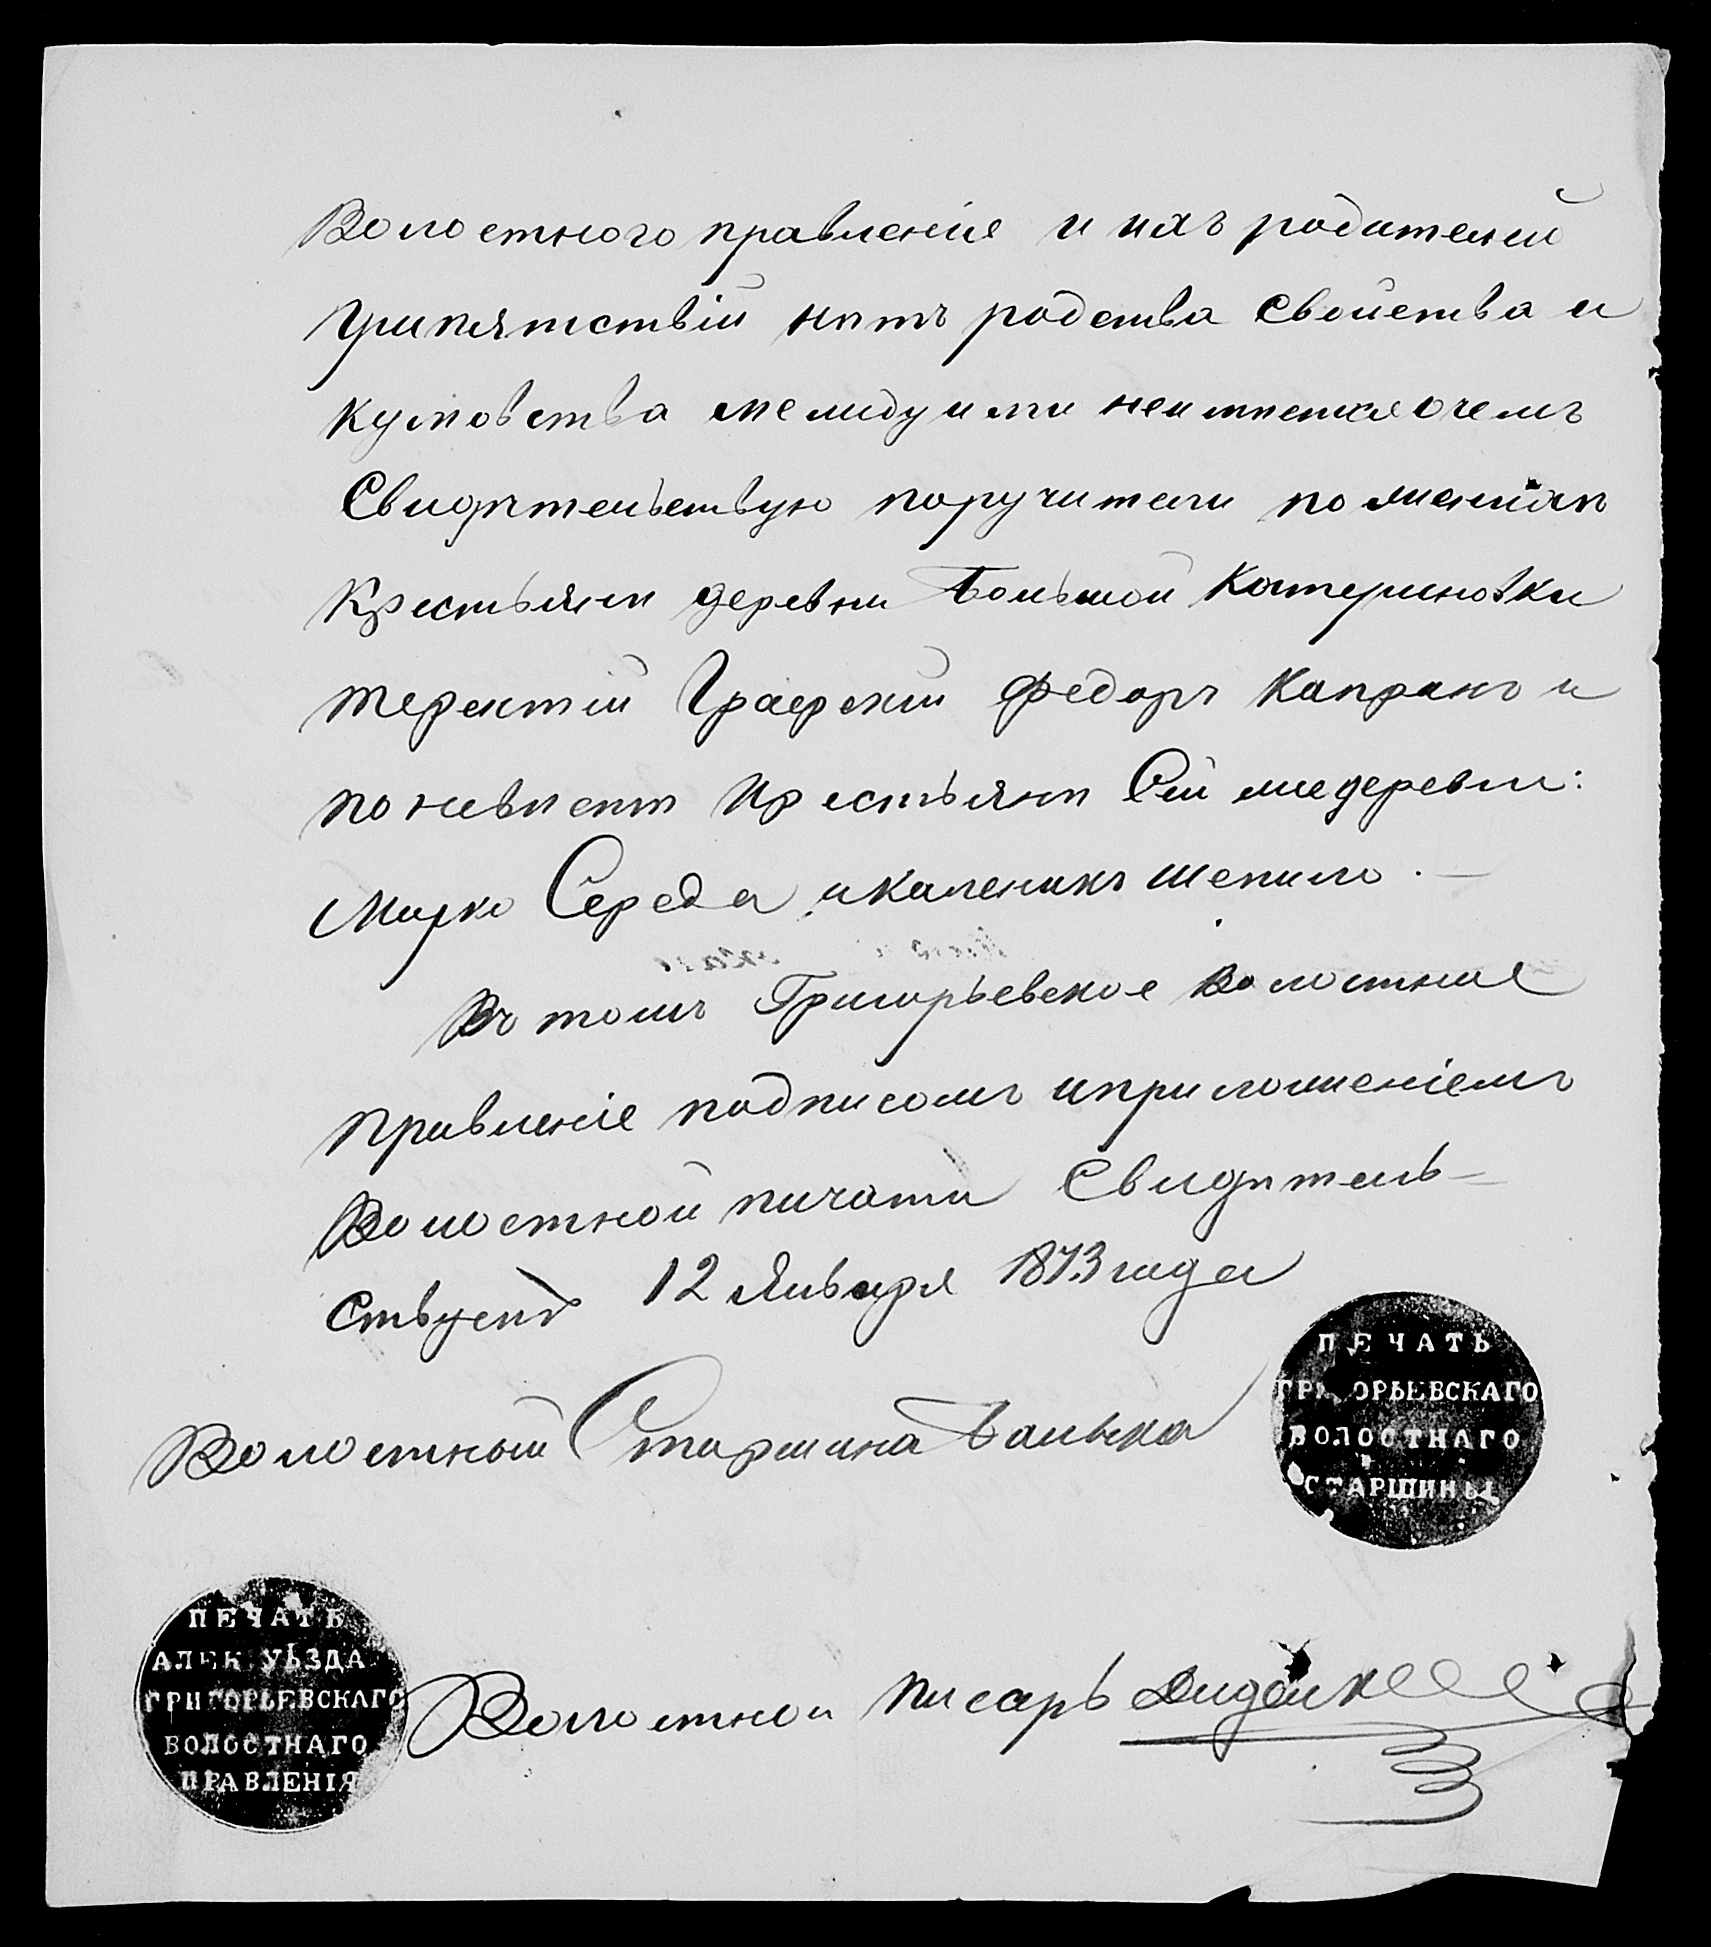 Волостного правленія и ихъ родителей
припятствій нѣтъ родства свойства и
кумовства между ими неимѣется очемъ
Свидѣтельствую поручители по женихѣ
Крестьяне деревни Большой Катериновки
Терентій Граерскій Федоръ Капранъ и
по невѣстѣ Крестьяне Сей же деревни:
Марко Середа и каленикъ шепило.—
Въ томъ Григорьевское Волостное
правленіе подписомъ иприложеніемъ
Волостной пичати Свидѣтель-
ствуетъ 12 Января 1873 года
ПЕЧАТЬ
ГРИГОРЬЕВСКАГО
ВОЛОСТНАГО
СТАРШИНЫ
Волостный Старшина Балька
ПЕЧАТЬ
АЛЕК. УѢЗДА
ГРИГОРЬЕВСКАГО
ВОЛОСТНАГО
ПРАВЛЕНІЯ
Волостной писарь